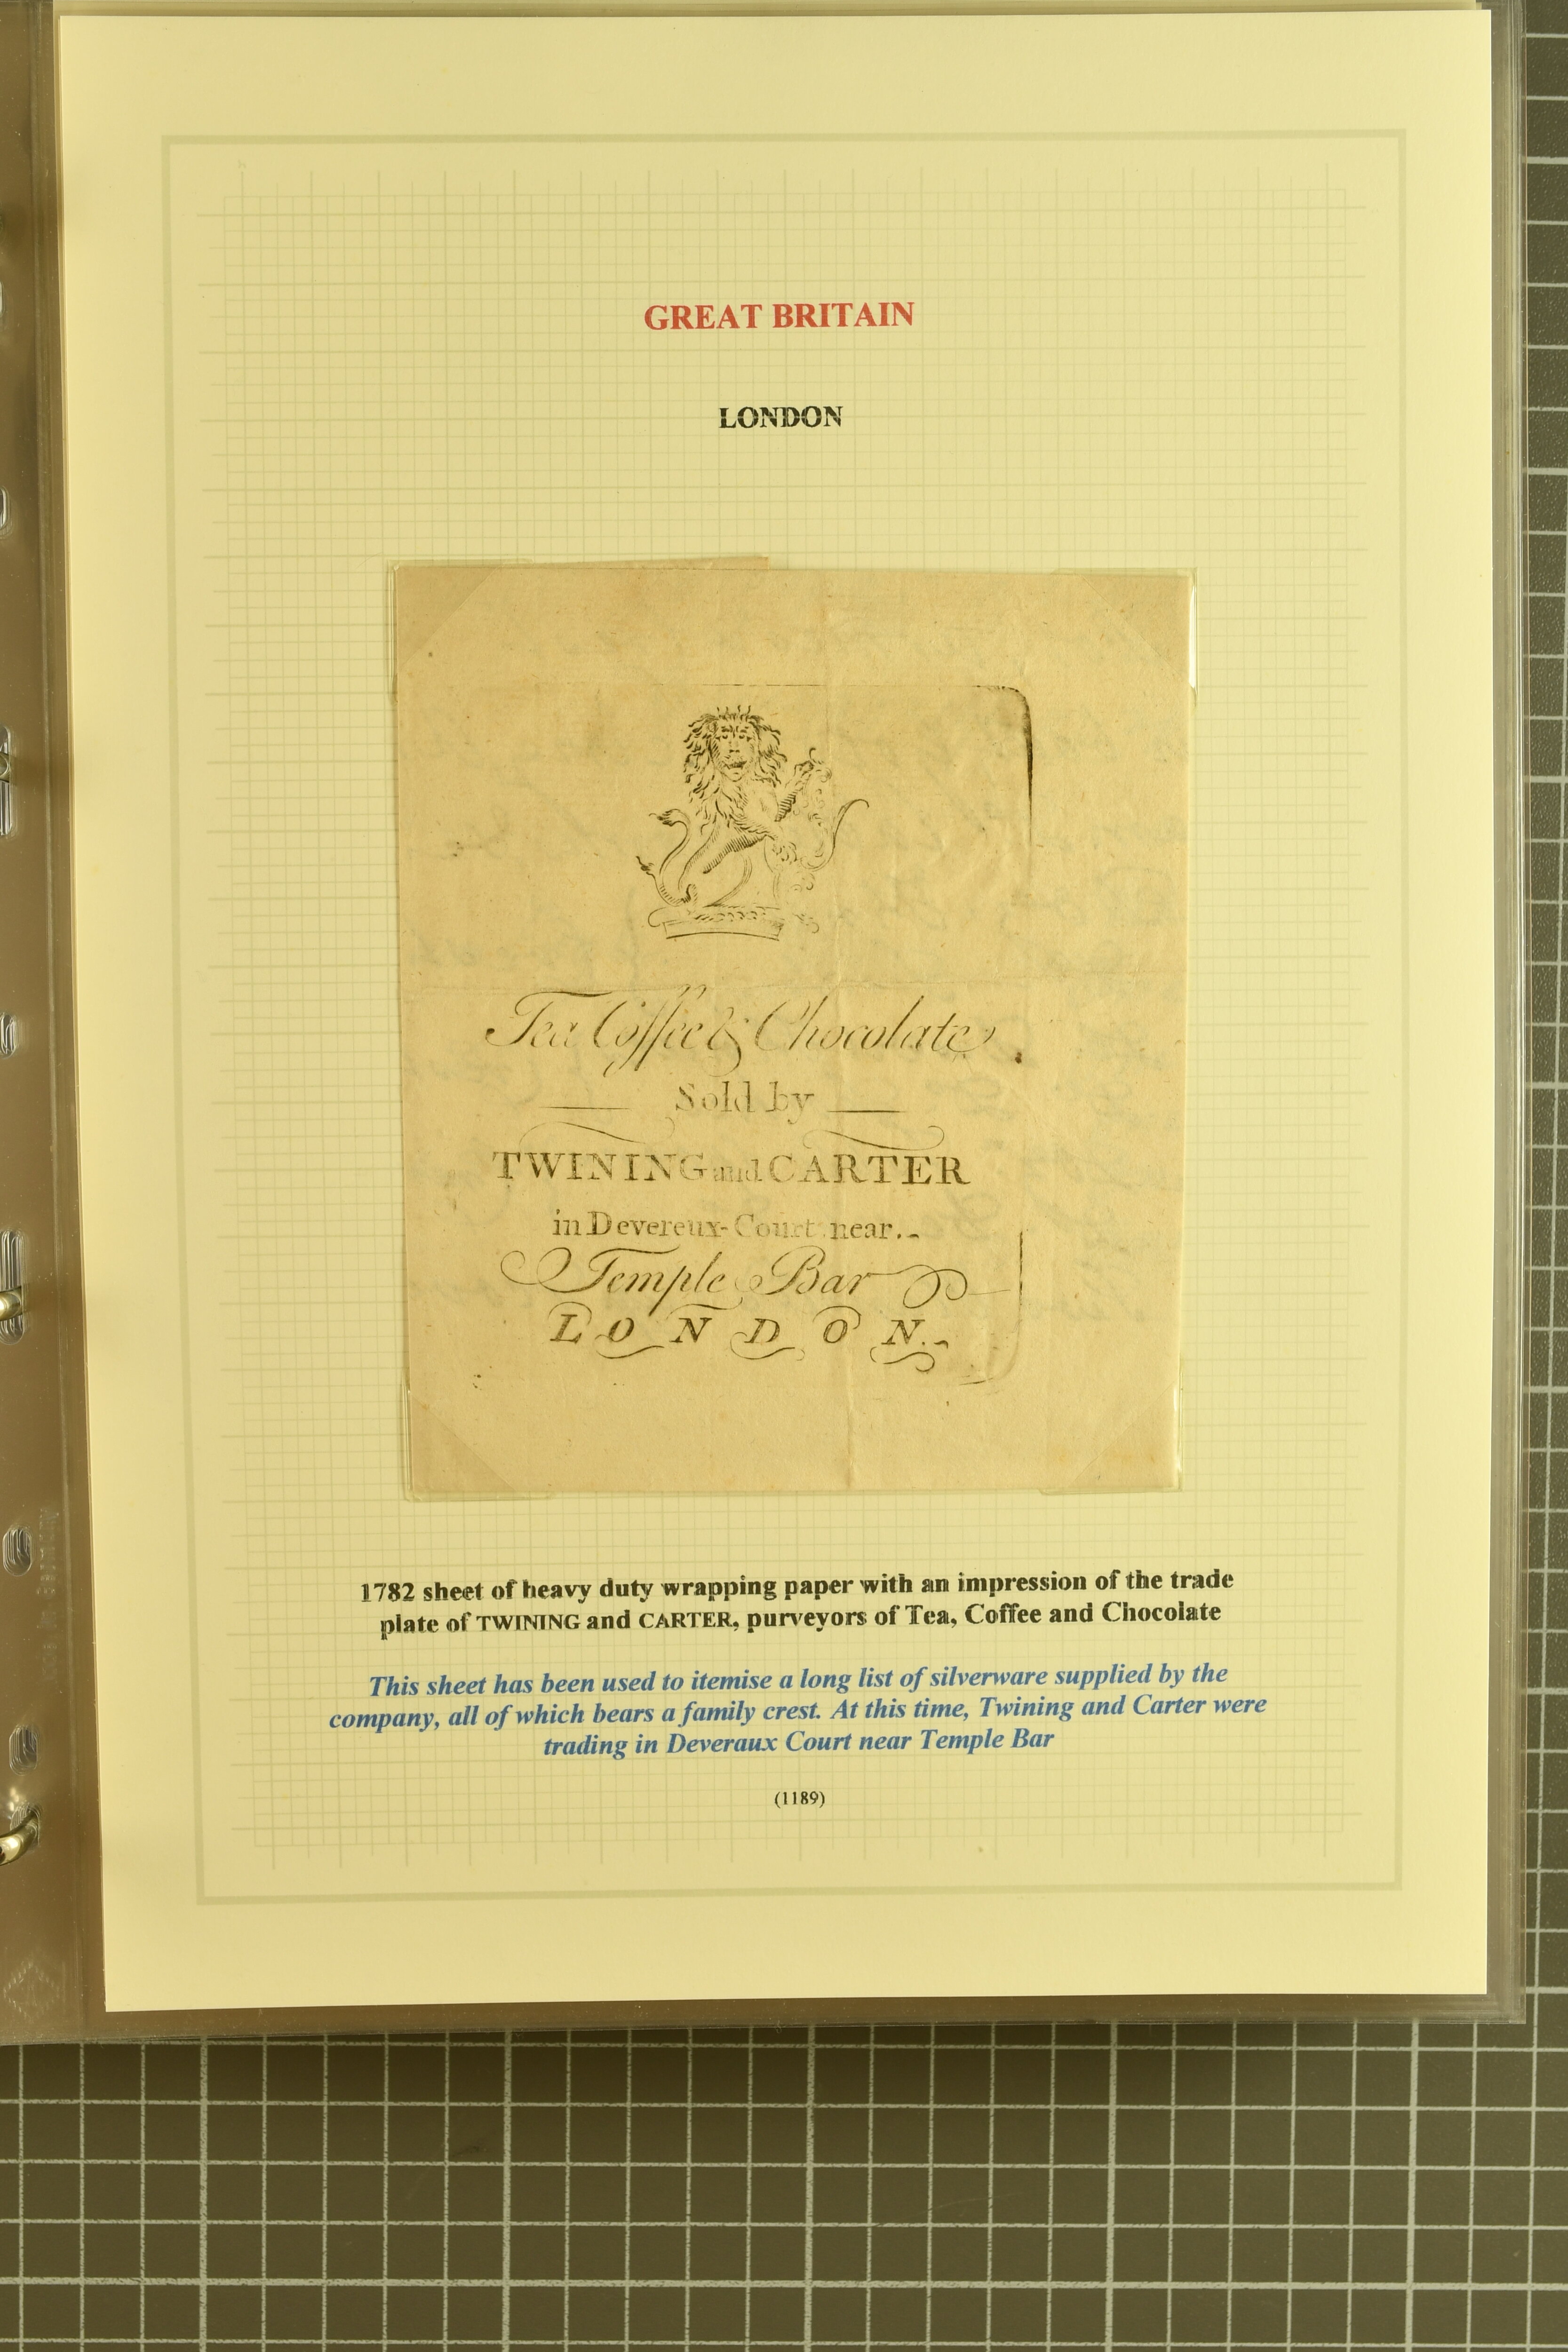 GREAT BRITAIN
LONDON
Tea Coffee & Chocolate
Sold by
TWINING and CARTER
in Devereux-Court near.
Temple Bar
LONDON.
1782 sheet of heavy duty wrapping paper with an impression of the trade
plate of TWINING and CARTER, purveyors of Tea, Coffee and Chocolate
This sheet has been used to itemise a long list of silverware supplied by the
company, all of which bears a family crest. At this time, Twining and Carter were
trading in Deveraux Court near Temple Bar
(1189)